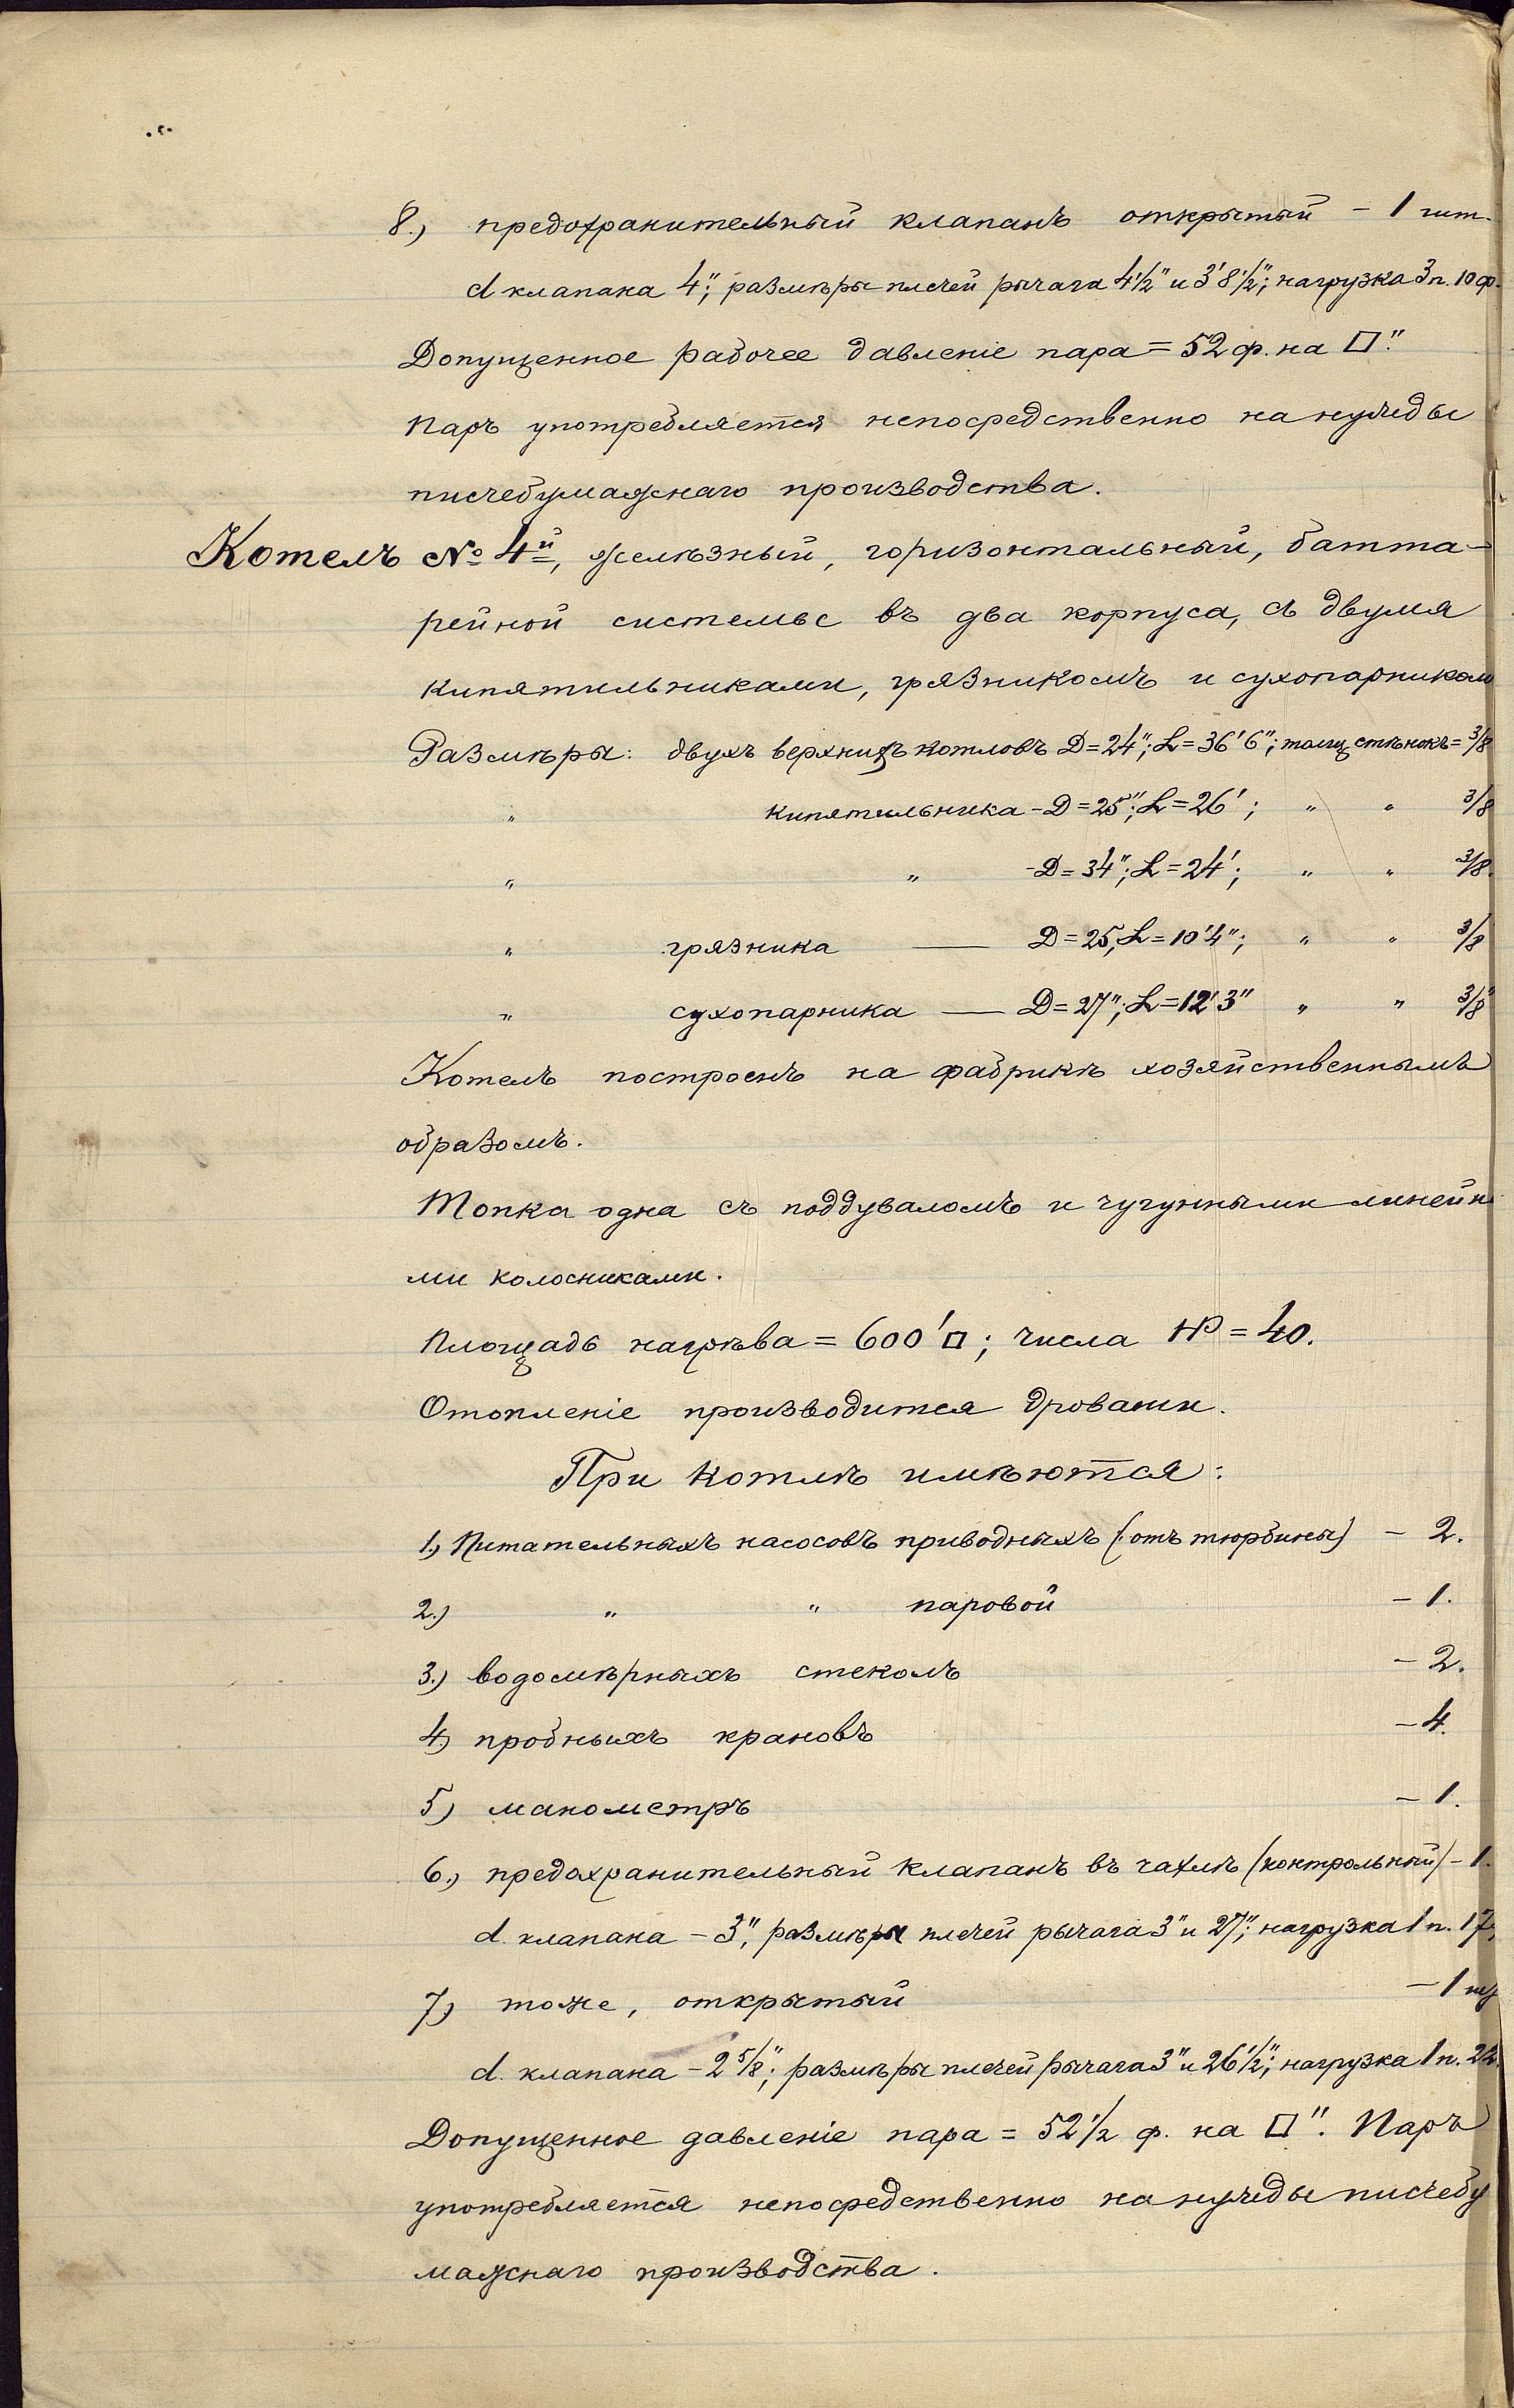 8.) предохранительный клапанъ открытый – 1 шт.
d клапана 4"; размѣры плечей рычага 4½" и 3' 8½"; нагрузка 3 п. 10 ф.
Допущенное рабочее давленіе пара = 52 ф. на □".
Паръ употребляется непосредственно на нужды
писчебумажнаго производства.
Котелъ № 4й, желѣзный, горизонтальный, батта-
рейной системы въ два корпуса, съ двумя
кипятильниками, грязникомъ и сухопарникомъ
Размѣры: двухъ верхнихъ котловъ D = 24"; L = 36' 6"; толщ. стѣнокъ = 3/8
" кипятильника – D = 25"; L = 26'; " " 3/8
" " – D = 34"; L = 24'; " " 3/8.
" грязника — D = 25, L = 10' 4"; " " 3/8
" сухопарника — D = 27"; L = 12' 3" " " 3/8"
Котелъ построенъ на фабрикѣ хозяйственнымъ
образомъ.
Топка одна съ поддуваломъ и чугунными линейн
ми колосниками.
Площадь нагрѣва = 600'□; числа HP = 40.
Отопленіе производится дровами.
При котлѣ имѣются:
1.) Питательныхъ насосовъ приводныхъ (отъ тюрбины) – 2.
2.) " " паровой – 1.
3.) водомѣрныхъ стеколъ – 2.
4.) пробныхъ крановъ – 4.
5) манометръ – 1.
6.) предохранительный клапанъ въ чахлѣ (контрольный) – 1.
d. клапана – 3", размѣры плечей рычага 3" и 27"; нагрузка 1 п. 17
7) тоже, открытый – 1 шт
d. клапана – 2 5/8"; размѣры плечей рычага 3" и 26½"; нагрузка 1 п. 22.
Допущенное давленіе пара = 52½ ф. на □". Паръ
употребляется непосредственно на нужды писчебу
мажнаго производства.